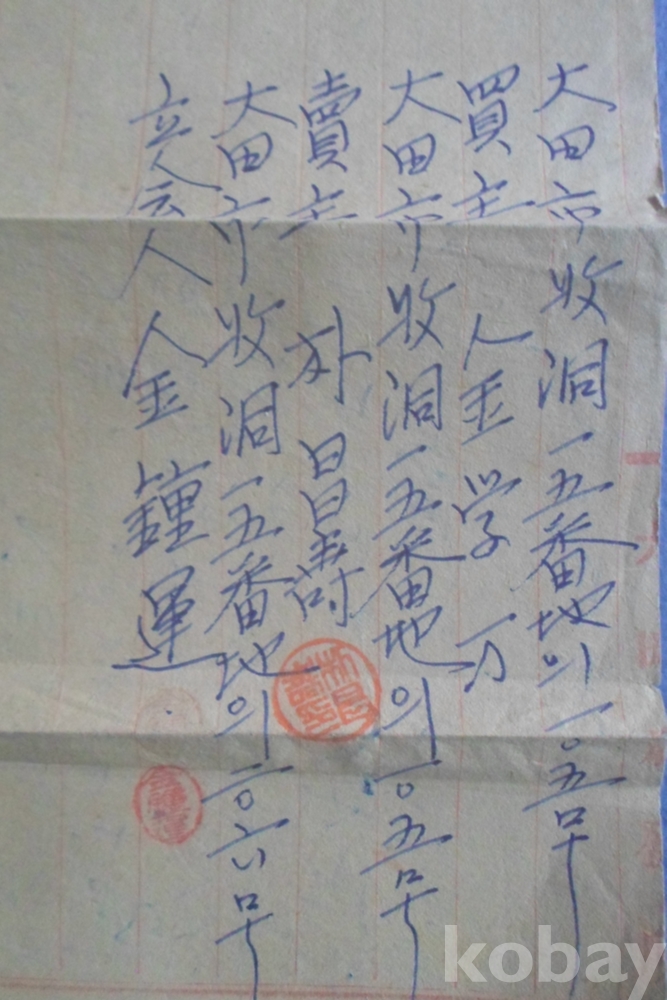 大田市收洞一五番地의一〇五号
買主 金学万
大田市收洞一五番地의一〇五号
賣主 朴昌壽
大田市收洞一五番地의一〇六号
立会人 金鐘運
kobay